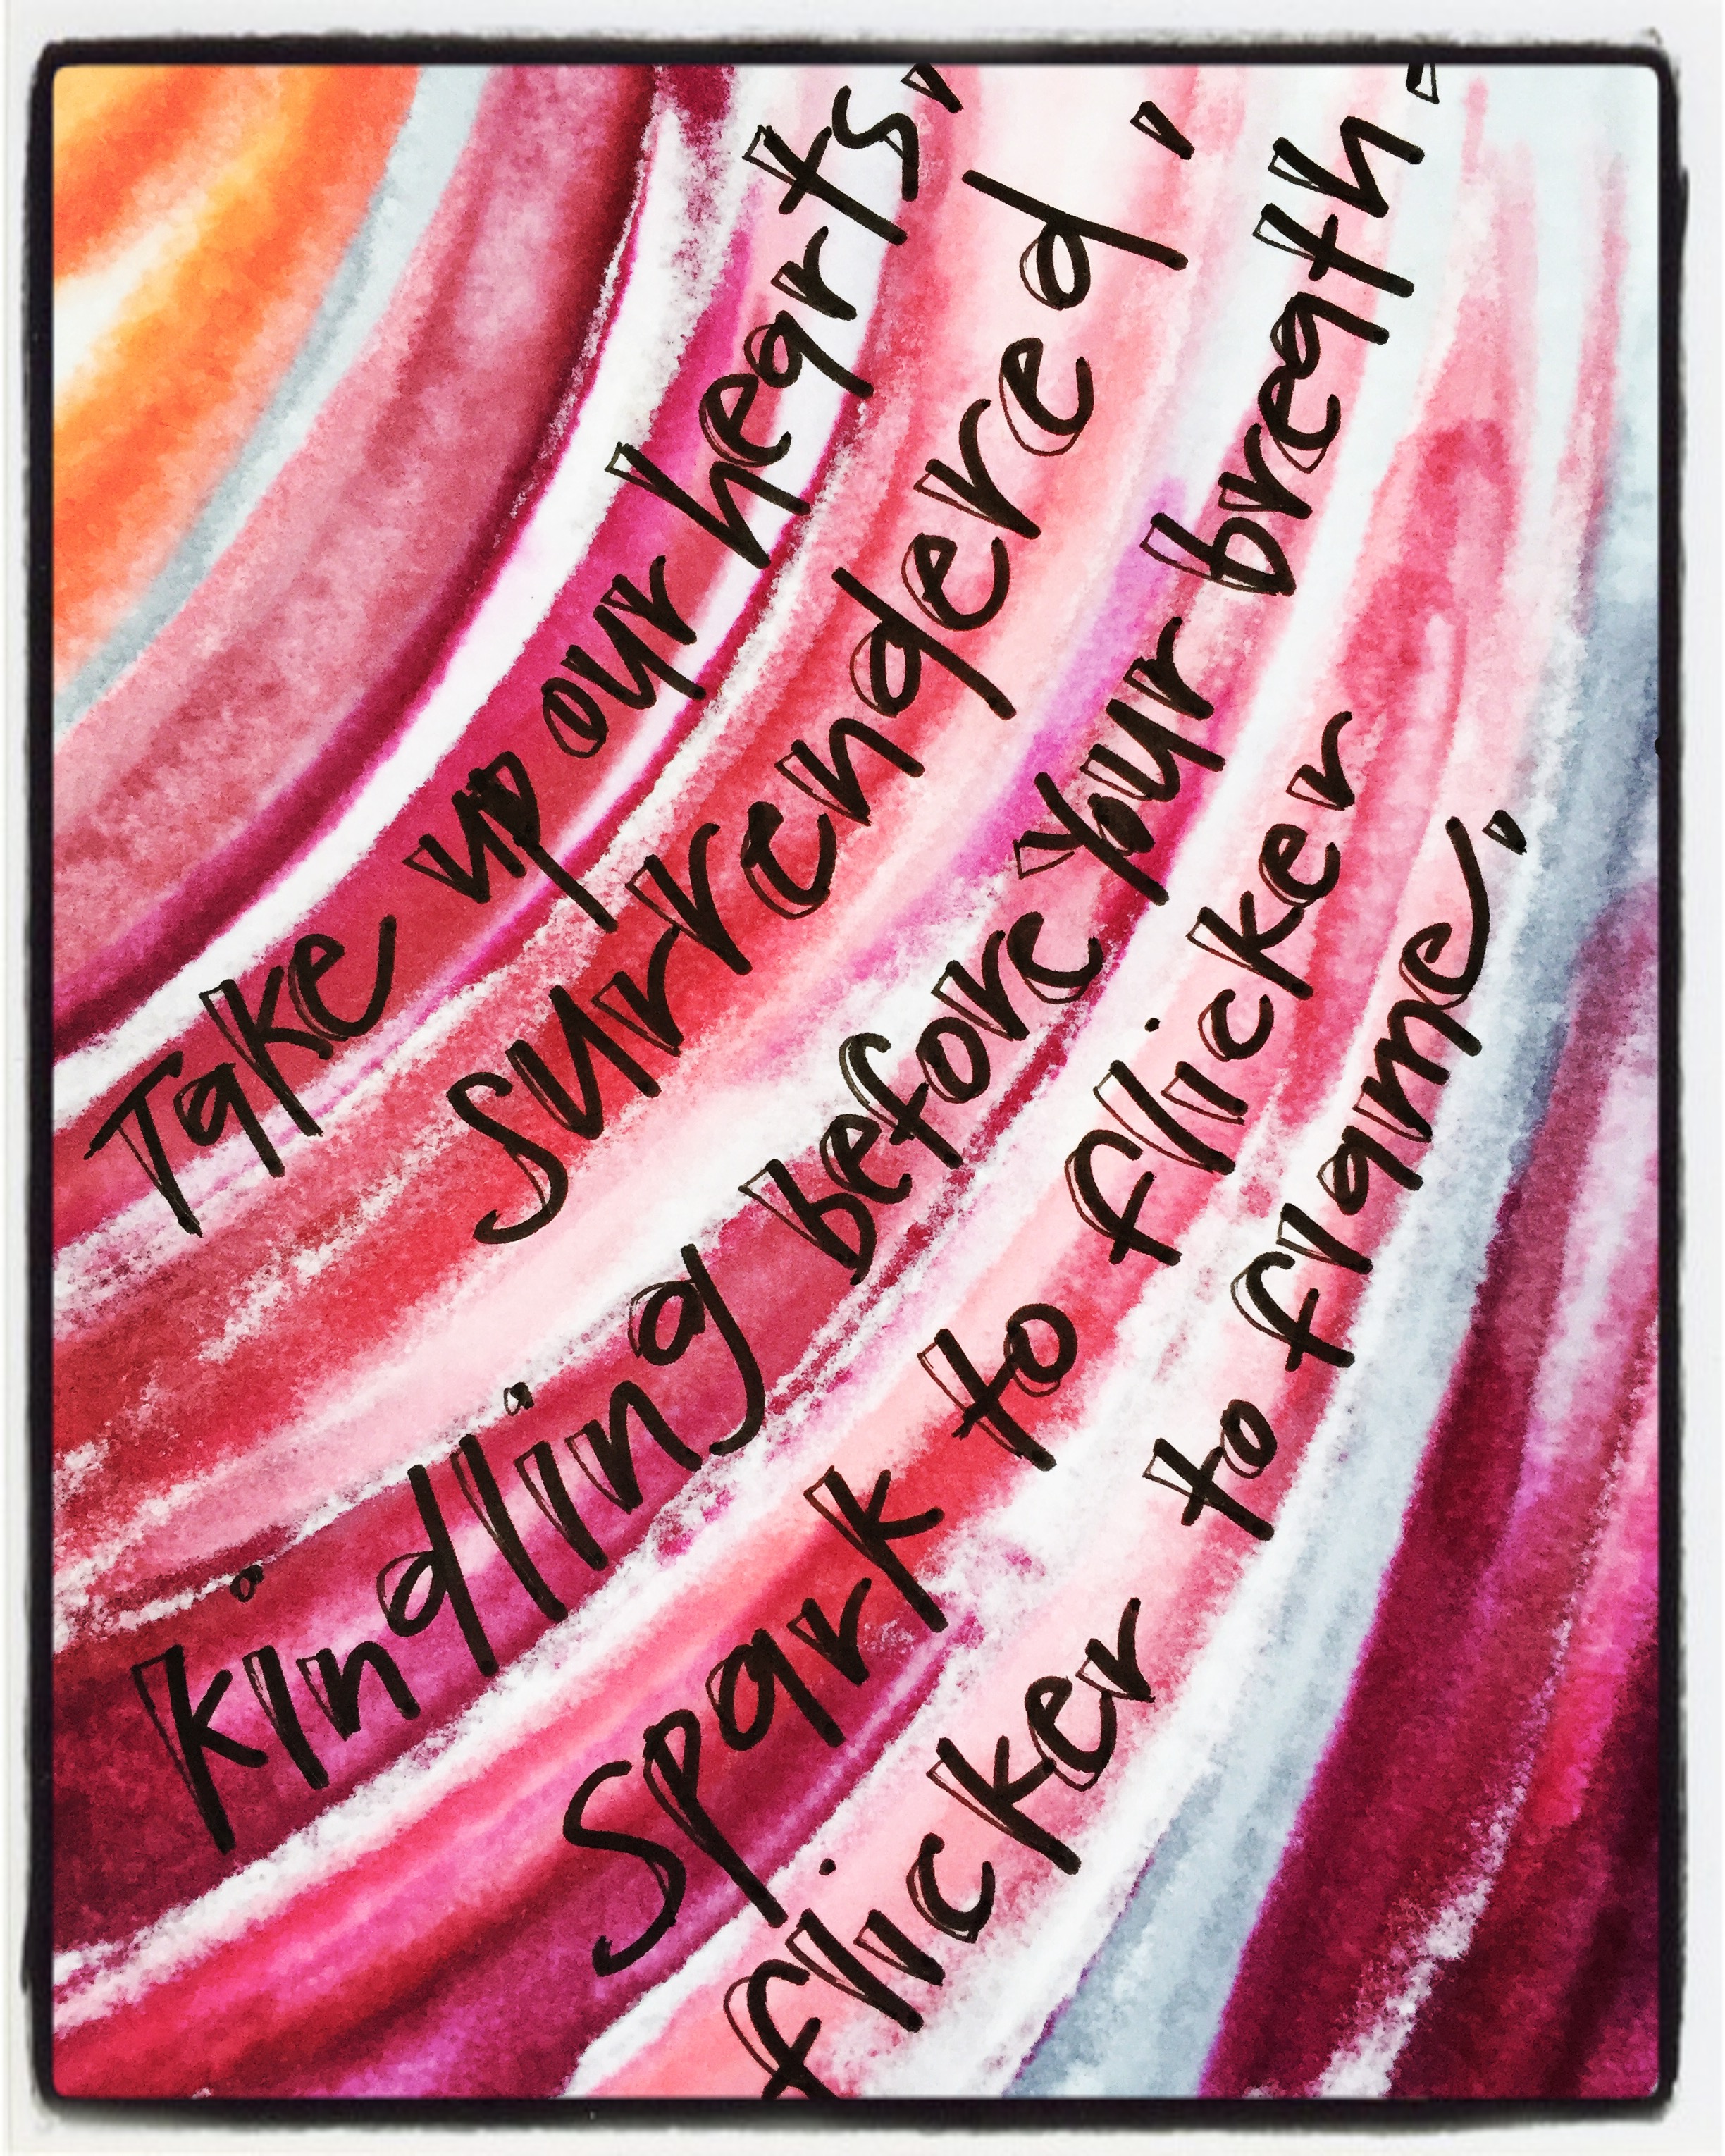 Take up our hearts,
surrendered,
kindling before your breath -
spark to flicker
flicker to flame,